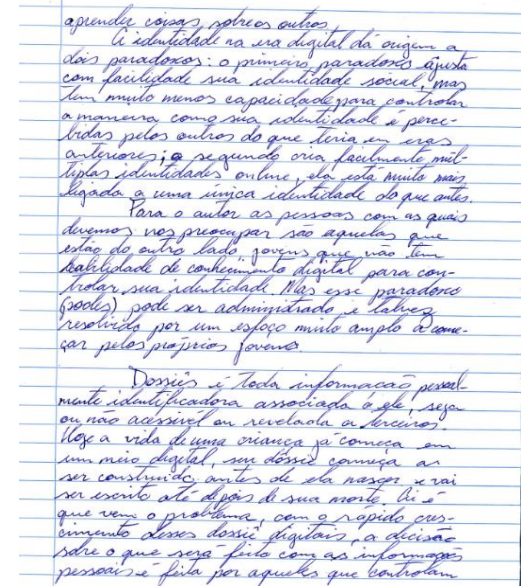 aprender coisas sobre os outros.
A identidade na era digital dá origem a
dois paradoxos: o primeiro paradoxo ajusta
com facilidade sua identidade social, mas
tem muito menos capacidade para controlar
a maneira como sua identidade é perce-
bidas pelos outros do que teria em eras
anteriores; o segundo cria facilmente múl-
tiplas identidades online, ela está muito mais
ligada a uma única identidade do que antes.
Para o autor as pessoas com as quais
devemos nos preocupar são aquelas que
estão do outro lado jovens que não tem
habilidade de conhecimento digital para con-
trolar sua identidade. Mas esse paradoxo
(podes) pode ser administrado e talvez
resolvido por um esfoço muito amplo a come-
çar pelos próprios jovens.
Dossiês é toda informação pessoal-
mente identificadora associada a ele, seja
ou não acessível ou revelada a terceiros.
Hoje a vida de uma criança já começa em
um meio digital, seu dossiê começa a
ser construído antes de ela nascer e vai
ser escrito até depois de sua morte. Ai é
que vem o problema, com o rápido cres-
cimento desses dossiê digitais, a decisão
sobre o que será feito com as informações
pessoais é feita por aqueles que controlam